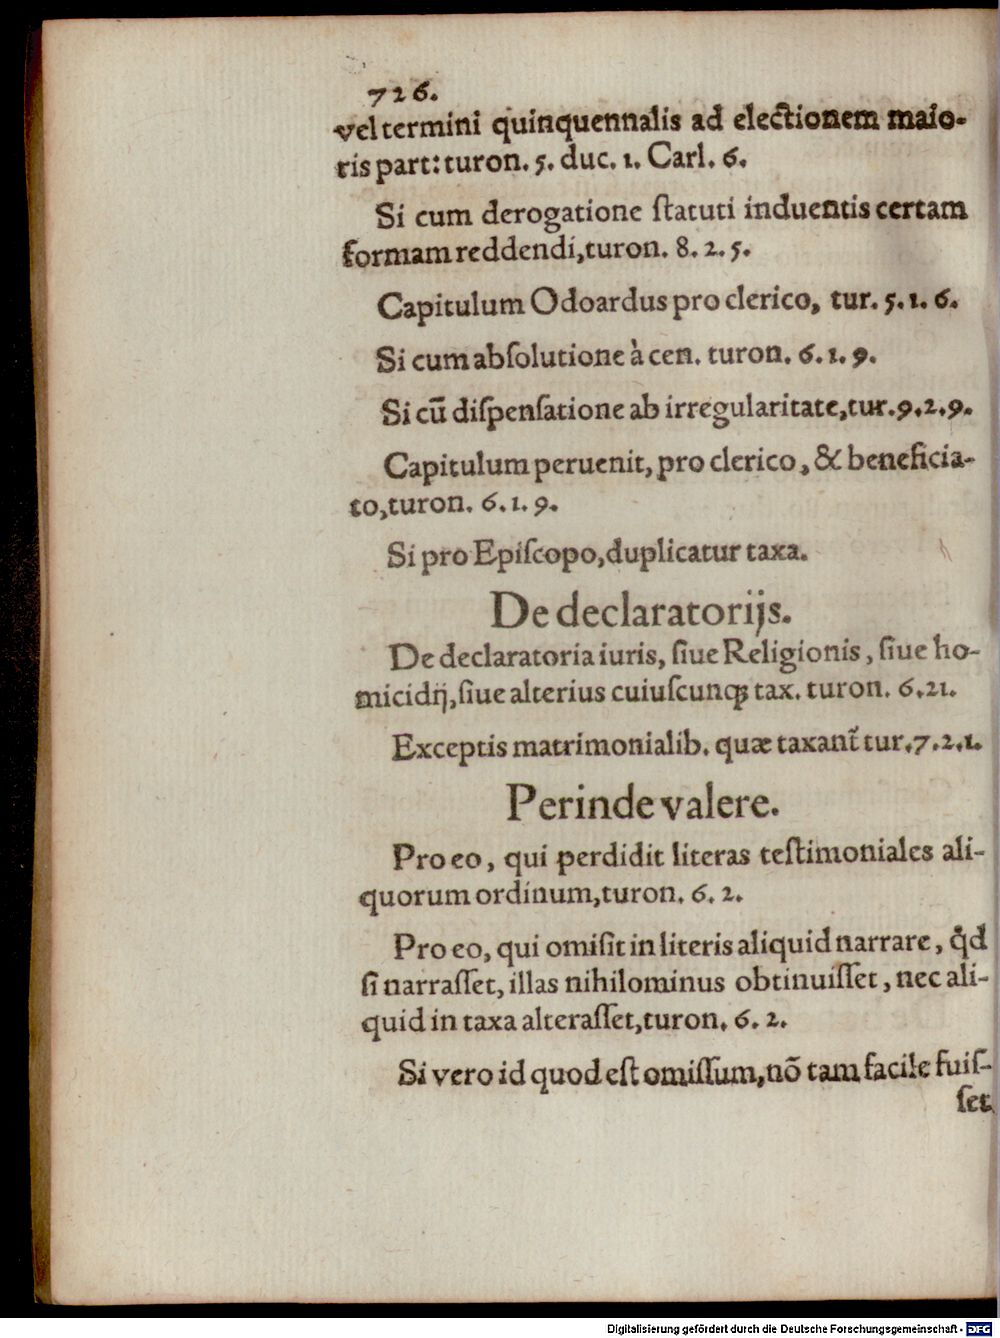 726.
vel termini quinquennalis ad electionem maio-
ris part: turon. 5. duc. 1. Carl. 6.
Si cum derogatione ſtatuti induentis certam
formam reddendi, turon. 8. 2. 5.
Capitulum Odoardus pro clerico, tur. 5. 1. 6.
Si cum abſolutione à cen. turon. 6. 1. 9.
Si cū diſpenſatione ab irregularitate, tur. 9. 2. 9.
Capitulum peruenit, pro clerico, & beneficia-
to, turon. 6. 1. 9.
Si pro Epiſcopo, duplicatur taxa.
De declaratorijs.
De declaratoria iuris, ſiue Religionis, ſiue ho-
micidij, ſiue alterius cuiuſcunqꝫ tax. turon. 6. 21.
Exceptis matrimonialib. quæ taxant᷑ tur. 7. 2. 1.
Perinde valere.
Pro eo, qui perdidit literas teſtimoniales ali-
quorum ordinum, turon. 6. 2.
Pro eo, qui omiſit in literis aliquid narrare, qͦd
ſi narraſſet, illas nihilominus obtinuiſſet, nec ali-
quid in taxa alteraſſet, turon. 6. 2.
Si vero id quod eſt omiſſum, nō tam facile fuiſ-
ſet
Digitalisierung gefördert durch die Deutsche Forschungsgemeinschaft - DFG